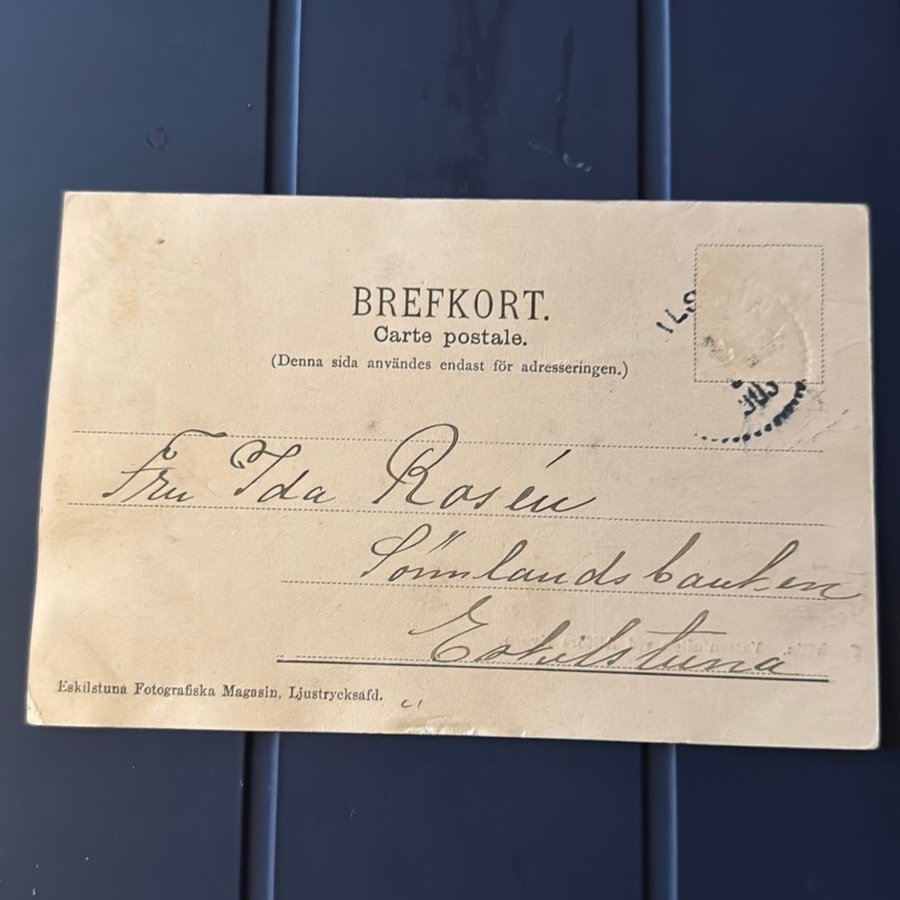 BREFKORT.
Carte postale.
(Denna sida användes endast för adresseringen.)
ILS
Fru Ida Rosén
Sörmlandsbanken
Eskilstuna
Eskilstuna Fotografiska Magasin, Ljustrycksafd.